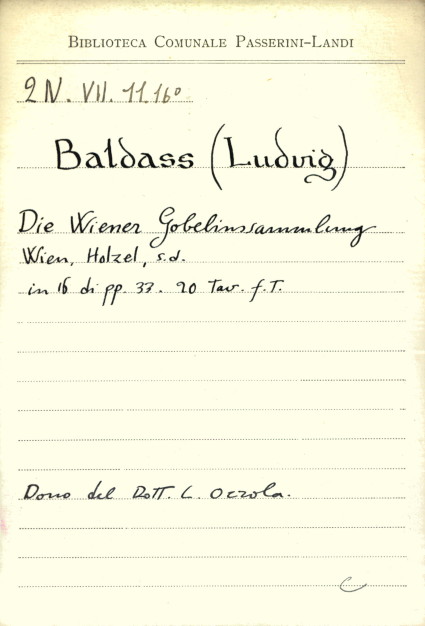 BIBLIOTECA COMUNALE PASSERINI-LANDI
2 N. VII. 11. 16º
Baldass (Ludvig)
Die Wiener Gobelinssammlung
Wien, Holzel, s.d.
in 16 di pp. 33. 20 Tav. f.T.
Dono del Dott. L. Ozzola.
C